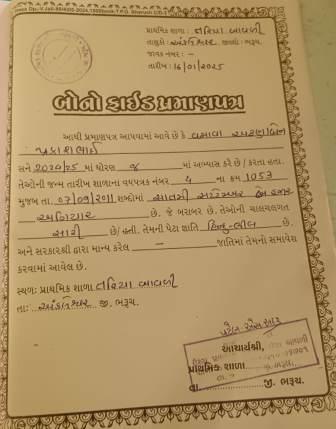 પ્રાથમિક શાળા : તરિયા બાવળી
તાલુકો : અંકલેશ્વર જીલ્લો : ભરૂચ.
જાવક નંબર : -
તારીખ : 16/01/2025
બોનો ફાઈડ પ્રમાણપત્ર
આથી પ્રમાણપત્ર આપવામાં આવે છે કે વસાવા
પ્રકાશભાઈ
સને 2024/25 માં ધોરણ માં અભ્યાસ કરે છે / કરતા હતા.
તેઓની જન્મ તારીખ શાળાના વયપત્રક નંબર 4 ના ક્રમ 1053
મુજબ તા. 07/09/2011 શબ્દોમાં સાતમી સપ્ટેમ્બર બે હજાર
અગિયાર છે. જે બરાબર છે. તેઓની ચાલચલગત
સારી છે/ હતી. તેમની પેટા જ્ઞાતિ હિન્દુ-ભીલ છે.
અને સરકારશ્રી દ્વારા માન્ય કરેલ — જાતિમાં તેમનો સમાવેશ
કરવામાં આવેલ છે.
સ્થળ: પ્રાથમિક શાળા તરિયા બાવળી
તા: અંકલેશ્વર જી. ભરૂચ.
આચાર્યશ્રી,
પ્રાથમિક શાળા
તા. જી. ભરૂચ.